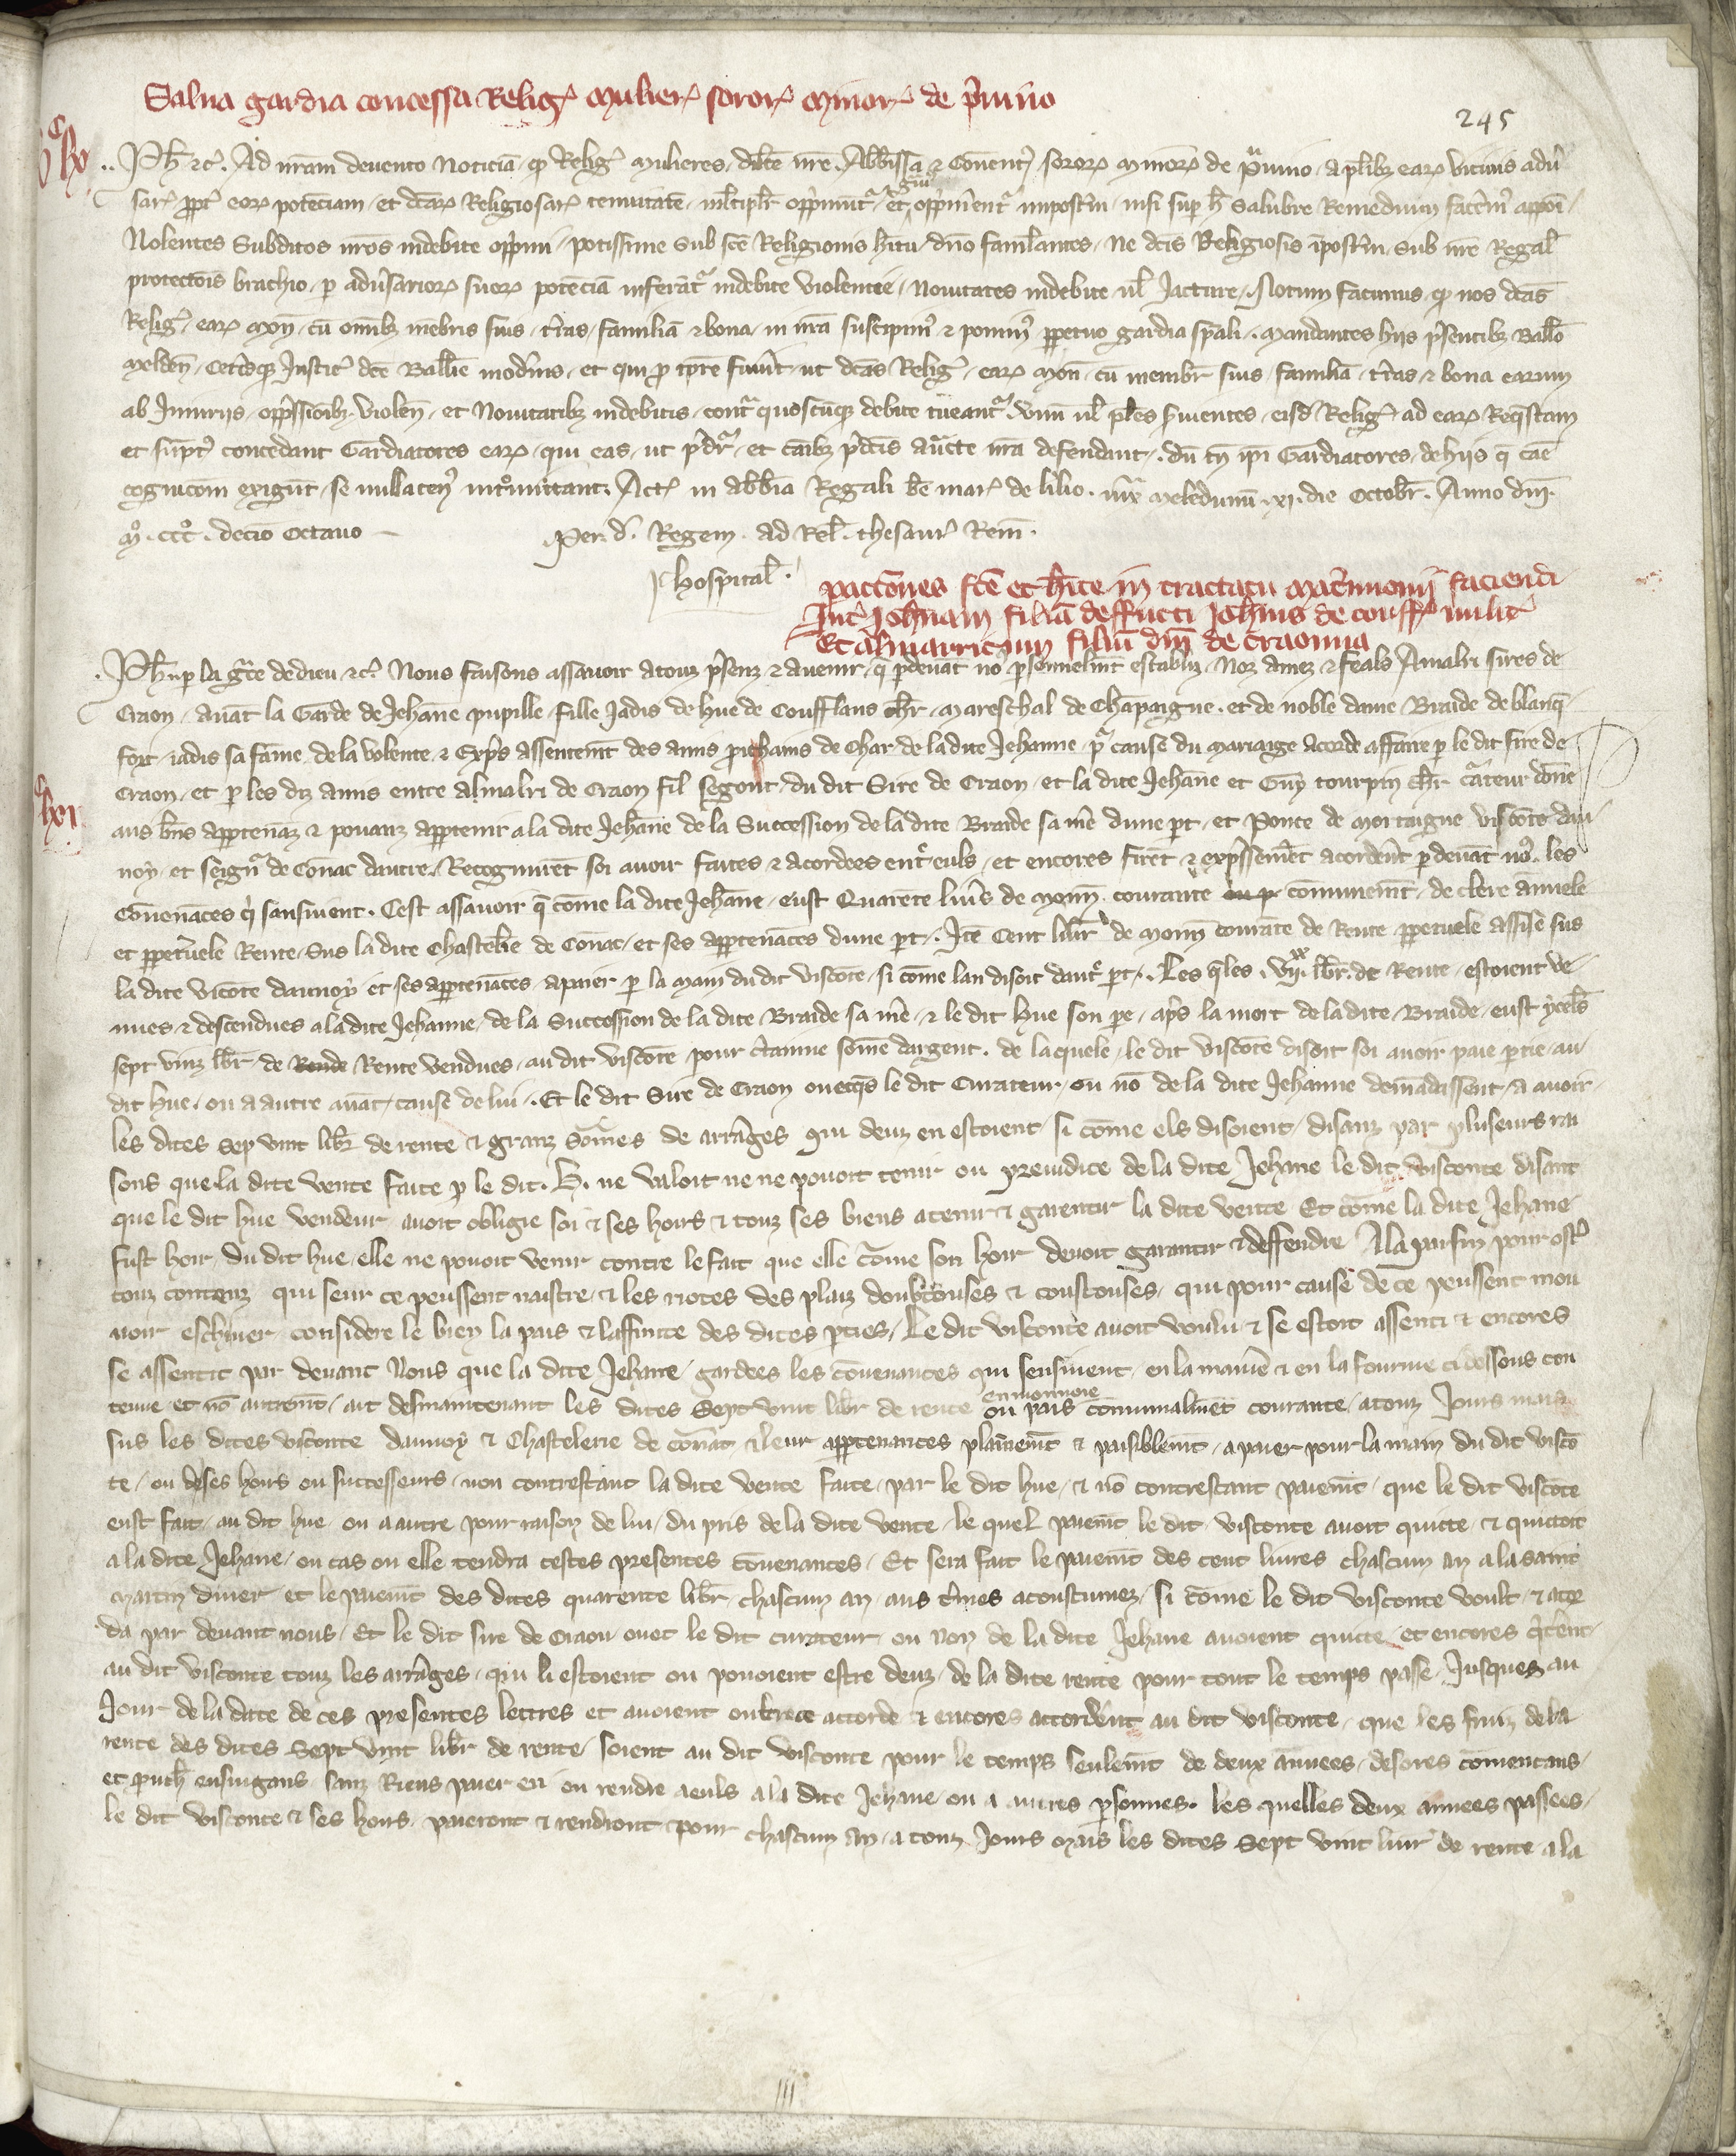 Salva gardia concessa Relig. mulier. soror. minor. de pruvino
245
Ph. etc. Ad nram devento noticia q Relig. mulieres dilce nre Abbissa et Convent. soror. minor. de pruvino a plibz ear. vicinis adv
sar. ppt eor. potenciam et dcar. Religiosar. tenuitate mltiplr opprimunt et gravi opprimentr impostm nisi sup h salubre remedium facem apponi
Nolentes subditos nros indebite opprimi potissime sub sce Religionis hitu dno famlantes ne dcis Religiosis ipostm sub nre Regal
protectois brachio p adversarior. suor. potencia inferatr indebite violentie novitates indebite vl jacture. Notum facimus q nos dcas
Relig. ear. mon. cu omibz membris suis tras familia et bona in nra suscipim et ponim ppetuo gardia spali. mandantes hiis psentibz Ballo
melden. ceterisqz justic. dce Ballie modernis et qui pro tpre fuint ut dcas Relig. ear. mon. cu membr suis familia tras et bona earum
ab injuriis oppssioibz violen. et novitatibz indebitis contr quoscuqz debite tueantr unu vl ples pvientes eisd Relig. ad ear. requestam
et supt concedant Gardiatores ear. qui eas ut pdr et caibz pdcis aucte nra defendant. du tn ipi Gardiatores de hiis q cae
cognicoem exigut se nullaten. intromittant. Act. in abbia Regali be mar. de lilio. iux meledunu. xi. die Octobr. Anno dni
mo. ccco. decio octavo
Per d. Regem. ad rel. thesaur. Rem.
J. hospital.
pactiones fce et hite in tractatu matrimonii faciendi
Int Johnam filia deffucti Johnis de couff. milit
Et Almarricum filiu dni de Craonnia
lxi
Ph. p la grce de dieu etc. Nous faisons assavoir a touz psenz et avenir q pdevat no psonnelmt establiz noz amez et feals Amalri sires de
Craon avat la garde de Jehane pupille fille jadis de hue de Coufflans chr mareschal de Champaigne et de noble dame Braide de blanq
fort jadis sa fame de la volente et expres assentemt des amis prochains de char de la dite Jehanne p cause du mariaige acorde affaire p le dit sire de
Craon et p les diz amis entre Almalri de Craon fil segont du dit sire de Craon et la dite Jehane et Guy tourpin chr crateur done
aus bns apptenaz et povanz apptenir a la dite Jehane de la succession de la dite Braide sa me dune pt et Ponce de mortaigne visconte dau
noy et seigno de Connac dautre. Recognurent soi avoir faites et acordees entr euls et encores firet et expssemet acorderent p devat nos les
convenances q sansuient. Cest assavoir q come la dite Jehane eust quarete livs de monn. courante communemt de clere annuele
et ppetuele rente sus la dite Chastelrie de Connac et ses appartenances dune pt. Ite cent libr de monn courate de rente ppetuele assise sus
la dite viconte daunoy et ses appartenances a paier p la main du dit visconte si come lan disoit dautr pt. Les qles vii xx lbr. de rente estoient ve
nues et descendues a la dite Jehanne de la succession de la dite Braide sa me et le dit hue son pe aps la mort de la dite Braide eust ycels
sept vinz lbr de Rente Rente vendues au dit visconte pour ctainne some dargent. de laquele le dit visconte disoit soi avoir paie ptie au
dit hue ou a autre avat cause de lui. Et le dit sire de Craon ovecqs le dit curateur ou no de la dite Jehanne demadassent a avoir
les dites sep vint libr de rente et granz somes de arrages qui deuz en estoient si come els disoient disanz par pluseurs rai
sons que la dite vente faite p le dit. H. ne valoit ne ne povoit tenir ou prejudice de la dite Jehane le dit visconte disant
que le dit hue vendeur avoit obligie soi et ses hoirs et touz ses biens a tenir et garentir la dite vente Et come la dite Jehane
fust hoir du dit hue elle ne povoit venir contre le fait que elle come son hoir devoit garantir et deffendre A la parfin pour ost
touz contenz qui seur ce peussent naistre et les riotes des plaiz doubtouses et coustouses qui pour cause de ce peussent mou
voir eschiver considere le bien la pais et laffinite des dites pties. Le dit visconte avoit voulu et se estoit assenti et encores
se assentit par devant Nous que la dite Jehane gardees les convenances qui sensivent en la manie et en la fourme ci dessous con
tenue et no autremt ait desmaintenant les dites Sept vint libr de rente en monnoie ou pais communalmet courante a touz jours mais
sus les dites visconte daunoy et Chastelerie de Connac et leur appartenances plainemt et paisiblemt a paier pour la main du dit visco
te ou de ses hoirs ou successeurs non contrestant la dite vente faite par le dit hue et no contrestant paiemt que le dit visconte
eust fait au dit hue ou a autre pour raison de lui du pris de la dite vente le quel paiemt le dit visconte avoit quicte et quictoit
a la dite Jehane ou cas ou elle tendra cestes presentes convenances. Et sera fait le paiemt des cent livres chascun an a la saint
martin diver et le paiemt des dites quarente libr chascun an aus tmes acoustumez si come le dit visconte voult et acor
da par devant nous. Et le dit sire de Craon ovec le dit curateur ou non de la dite Jehane avoient quicte et encores qterent
au dit visconte touz les arrages qui li estoient ou povoient estre deuz de la dite rente pour tout le temps passe jusques au
jour de la date de ces presentes lettres et avoient oultre ce accorde et encores accorderent au dit visconte que les fruiz de la
rente des dites Sept vint libr de rente soient au dit visconte pour le temps seulemt de deux annees desores comencans
et proch ensuigans sanz riens paier en ou rendre a euls a la dite Jehane ou a autres psonnes. les quelles deux annees passees
le dit visconte et ses hoirs paieront et rendront pour chascun an a touz jours mais les dites Sept vint livr de rente a la